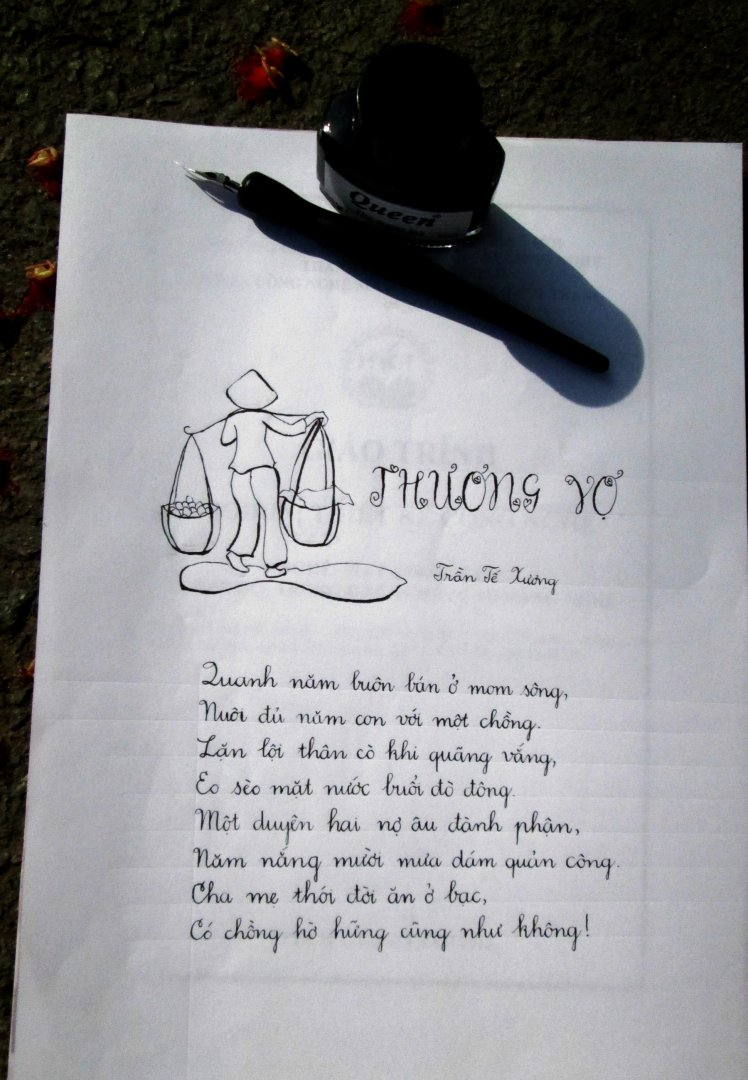 Queen
THƯƠNG VỢ
Trần Tế Xương
Quanh năm buôn bán ở mom sông,
Nuôi đủ năm con với một chồng.
Lặn lội thân cò khi quãng vắng,
Eo sèo mặt nước buổi đò đông.
Một duyên hai nợ âu đành phận,
Năm nắng mười mưa dám quản công.
Cha mẹ thói đời ăn ở bạc,
Có chồng hờ hững cũng như không!